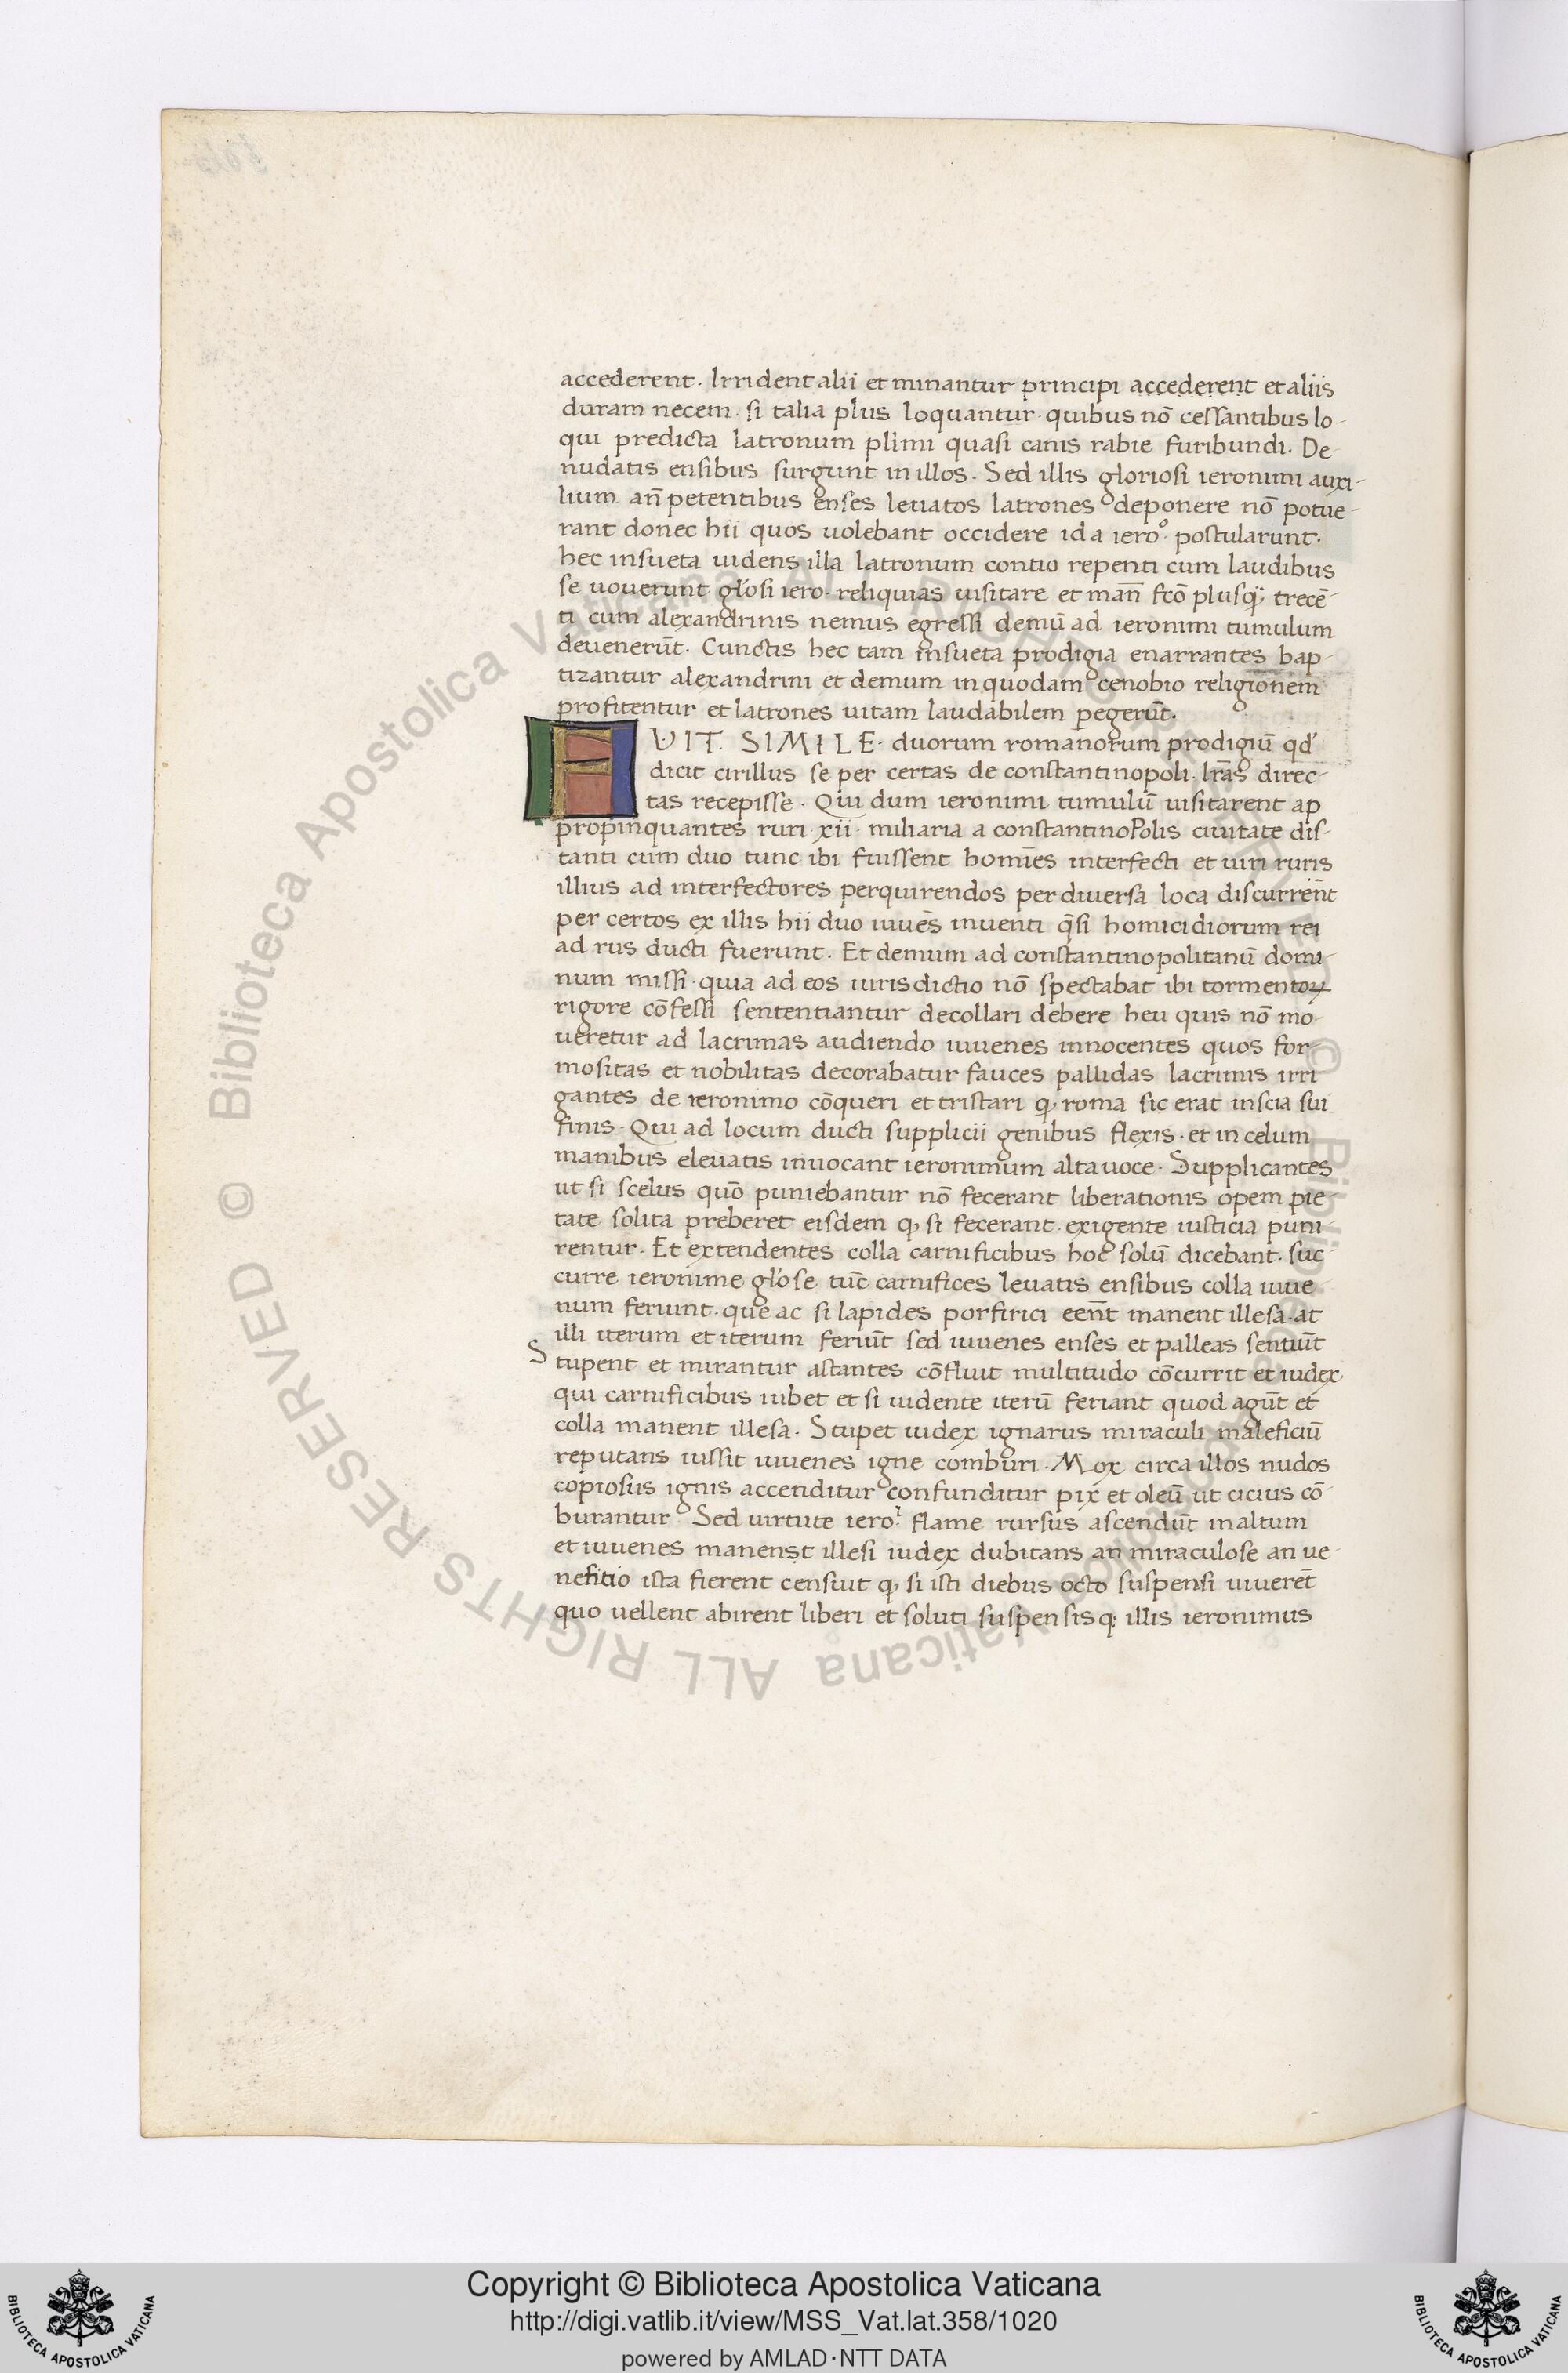 accederent. Irrident alii et minantur principi accederent et aliis
duram necem. si talia plus loquantur. quibus nō cessantibus lo-
qui predicta latronum plimi quasi canis rabie furibundi. De-
nudatis ensibus surgunt in illos. Sed illis gloriosi ieronimi auxi-
lium an̄ petentibus enses leuatos latrones deponere nō potue-
rant donec hii quos uolebant occidere id a ieroº. postularunt.
hec insueta uidens illa latronum contio repenti cum laudibus
se uouerunt gl̄osi iero. reliquias uisitare et man̄ fcō plusq̃; trecē-
ti cum alexandrinis nemus egressi demū ad ieronimi tumulum
deuenerūt. Cunctis hec tam insueta prodigia enarrantes bap-
tizantur alexandrini et demum in quodam cenobio religionem
profitentur et latrones uitam laudabilem ꝑegerūt.
FUIT. SIMILE. duorum romanorum prodigiū qd'
dicit cirillus se per certas de constantinopoli. lr̄as direc-
tas recepisse. Qui dum ieronimi tumulū uisitarent ap
propinquantes ruri xii. miliaria a constantinoPolis ciuitate dis-
tanti cum duo tunc ibi fuissent homīes interfecti et uiri ruris
illius ad interfectores perquirendos per diuersa loca discurrēnt
per certos ex illis hii duo iuuēs inuenti q̄si homicidiorum rei
ad rus ducti fuerunt. Et demum ad constantinopolitanū domi-
num missi. quia ad eos iurisdictio nō spectabat ibi tormentoꝝ
rigore cōfessi sententiantur decollari debere heu quis nō mo-
ueretur ad lacrimas audiendo iuuenes innocentes quos for-
mositas et nobilitas decorabatur fauces pallidas lacrimis irri
gantes de ieronimo cōqueri et tristari q, roma sic erat inscia sui
finis. Qui ad locum ducti supplicii genibus flexis. et in celum
manibus eleuatis inuocant ieronimum alta uoce. Supplicantes
ut si scelus quō puniebantur nō fecerant liberationis opem pie-
tate solita preberet eisdem q, si fecerant. exigente iusticia puni
rentur. Et extendentes colla carnificibus hoc solū dicebant. suc-
curre ieronime gl̄ose tūc carnifices leuatis ensibus colla iuue-
num feriunt. que ac si lapides porfirici eēnt manent illesa. at
illi iterum et iterum feriūt sed iuuenes enses et palleas sentiūt
Stupent et mirantur astantes cōfluit multitudo cōcurrit et iudex.
qui carnificibus iubet et si uidente iterū feriant quod agūt et
colla manent illesa. Stupet iudex ignarus miraculi maleficiū
reputans iussit iuuenes igne comburi. Mox circa illos nudos
copiosus ignis accenditur confunditur pix et oleū ut cicius cō-
burantur. Sed uirtute ieroⁱ. flame rursus ascendūt in altum
et iuuenes manenst illesi iudex dubitans an miraculose an ue-
nefitio ista fierent censuit q, si isti diebus octo suspensi uiuerēt
quo uellent abirent liberi et soluti suspensisq; illis ieronimus
© Biblioteca Apostolica Vaticana ALL RIGHTS RESERVED © Biblioteca Apostolica Vaticana ALL RIGHTS RESERVED
Copyright © Biblioteca Apostolica Vaticana
http://digi.vatlib.it/view/MSS_Vat.lat.358/1020
powered by AMLAD·NTT DATA
BIBLIOTECA APOSTOLICA VATICANA
BIBLIOTECA APOSTOLICA VATICANA